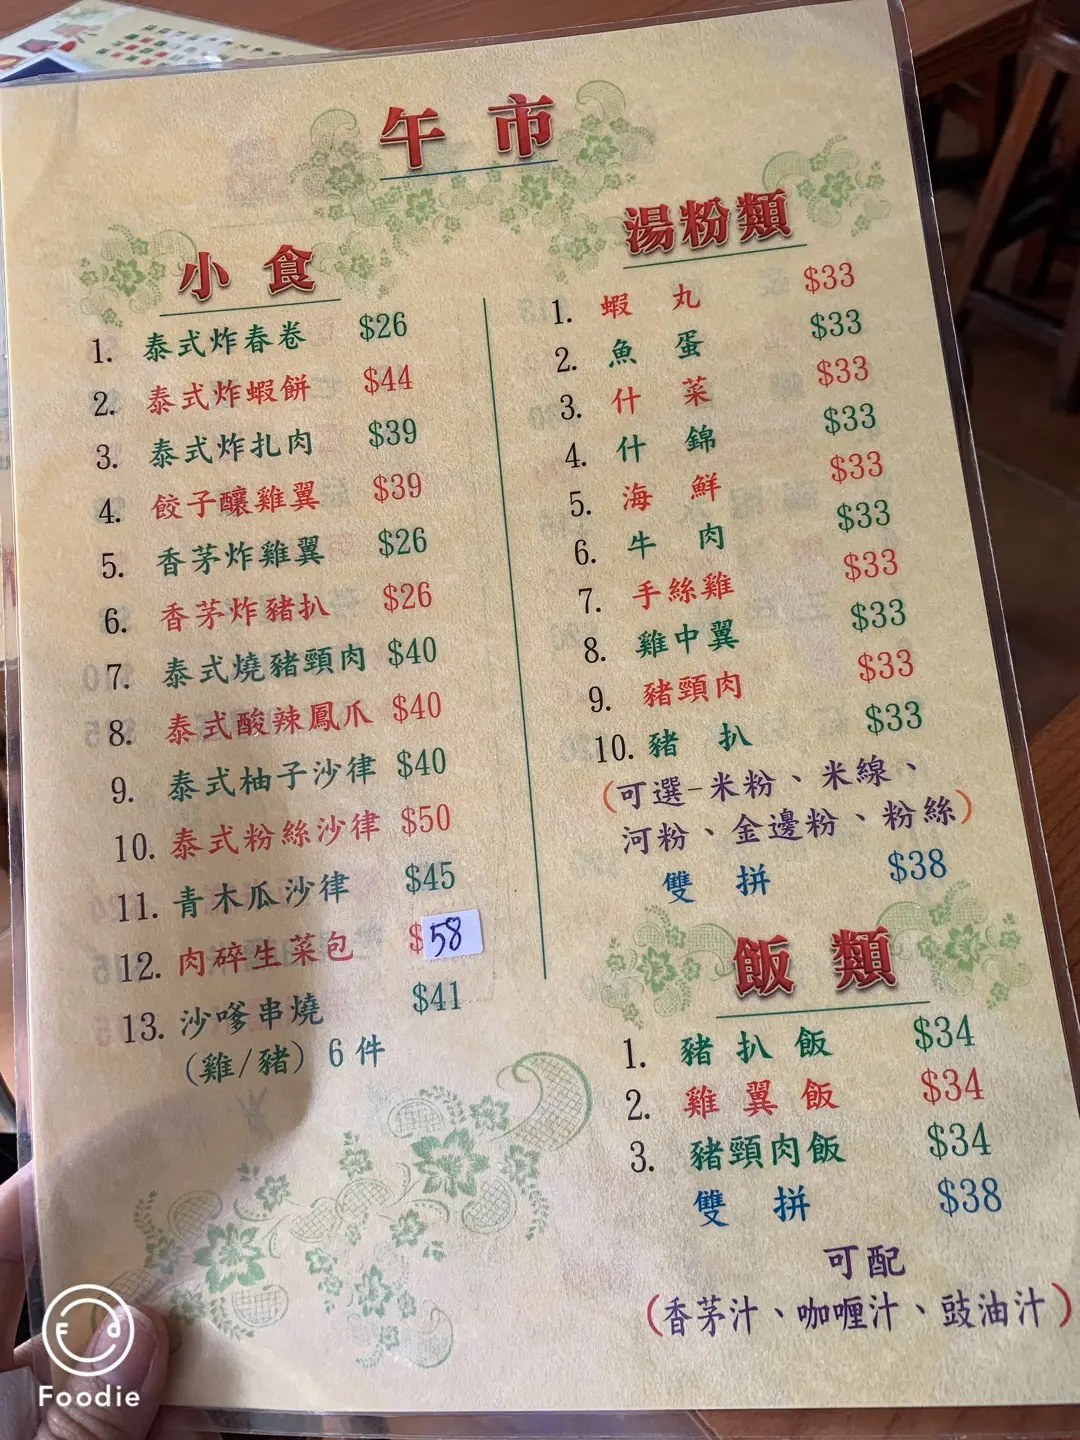 午市
小食
1. 泰式炸春卷 $26
2. 泰式炸蝦餅 $44
3. 泰式炸扎肉 $39
4. 餃子釀雞翼 $39
5. 香茅炸雞翼 $26
6. 香茅炸豬扒 $26
7. 泰式燒豬頸肉 $40
8. 泰式酸辣鳳爪 $40
9. 泰式柚子沙律 $40
10. 泰式粉絲沙律 $50
11. 青木瓜沙律 $45
12. 肉碎生菜包 $58
13. 沙嗲串燒 $41
(雞/豬) 6件
湯粉類
1. 蝦丸 $33
2. 魚蛋 $33
3. 什菜 $33
4. 什錦 $33
5. 海鮮 $33
6. 牛肉 $33
7. 手絲雞 $33
8. 雞中翼 $33
9. 豬頸肉 $33
10. 豬扒 $33
(可選-米粉、米線、
河粉、金邊粉、粉絲)
雙拼 $38
飯類
1. 豬扒飯 $34
2. 雞翼飯 $34
3. 豬頸肉飯 $34
雙拼 $38
可配
(香茅汁、咖喱汁、豉油汁)
Foodie